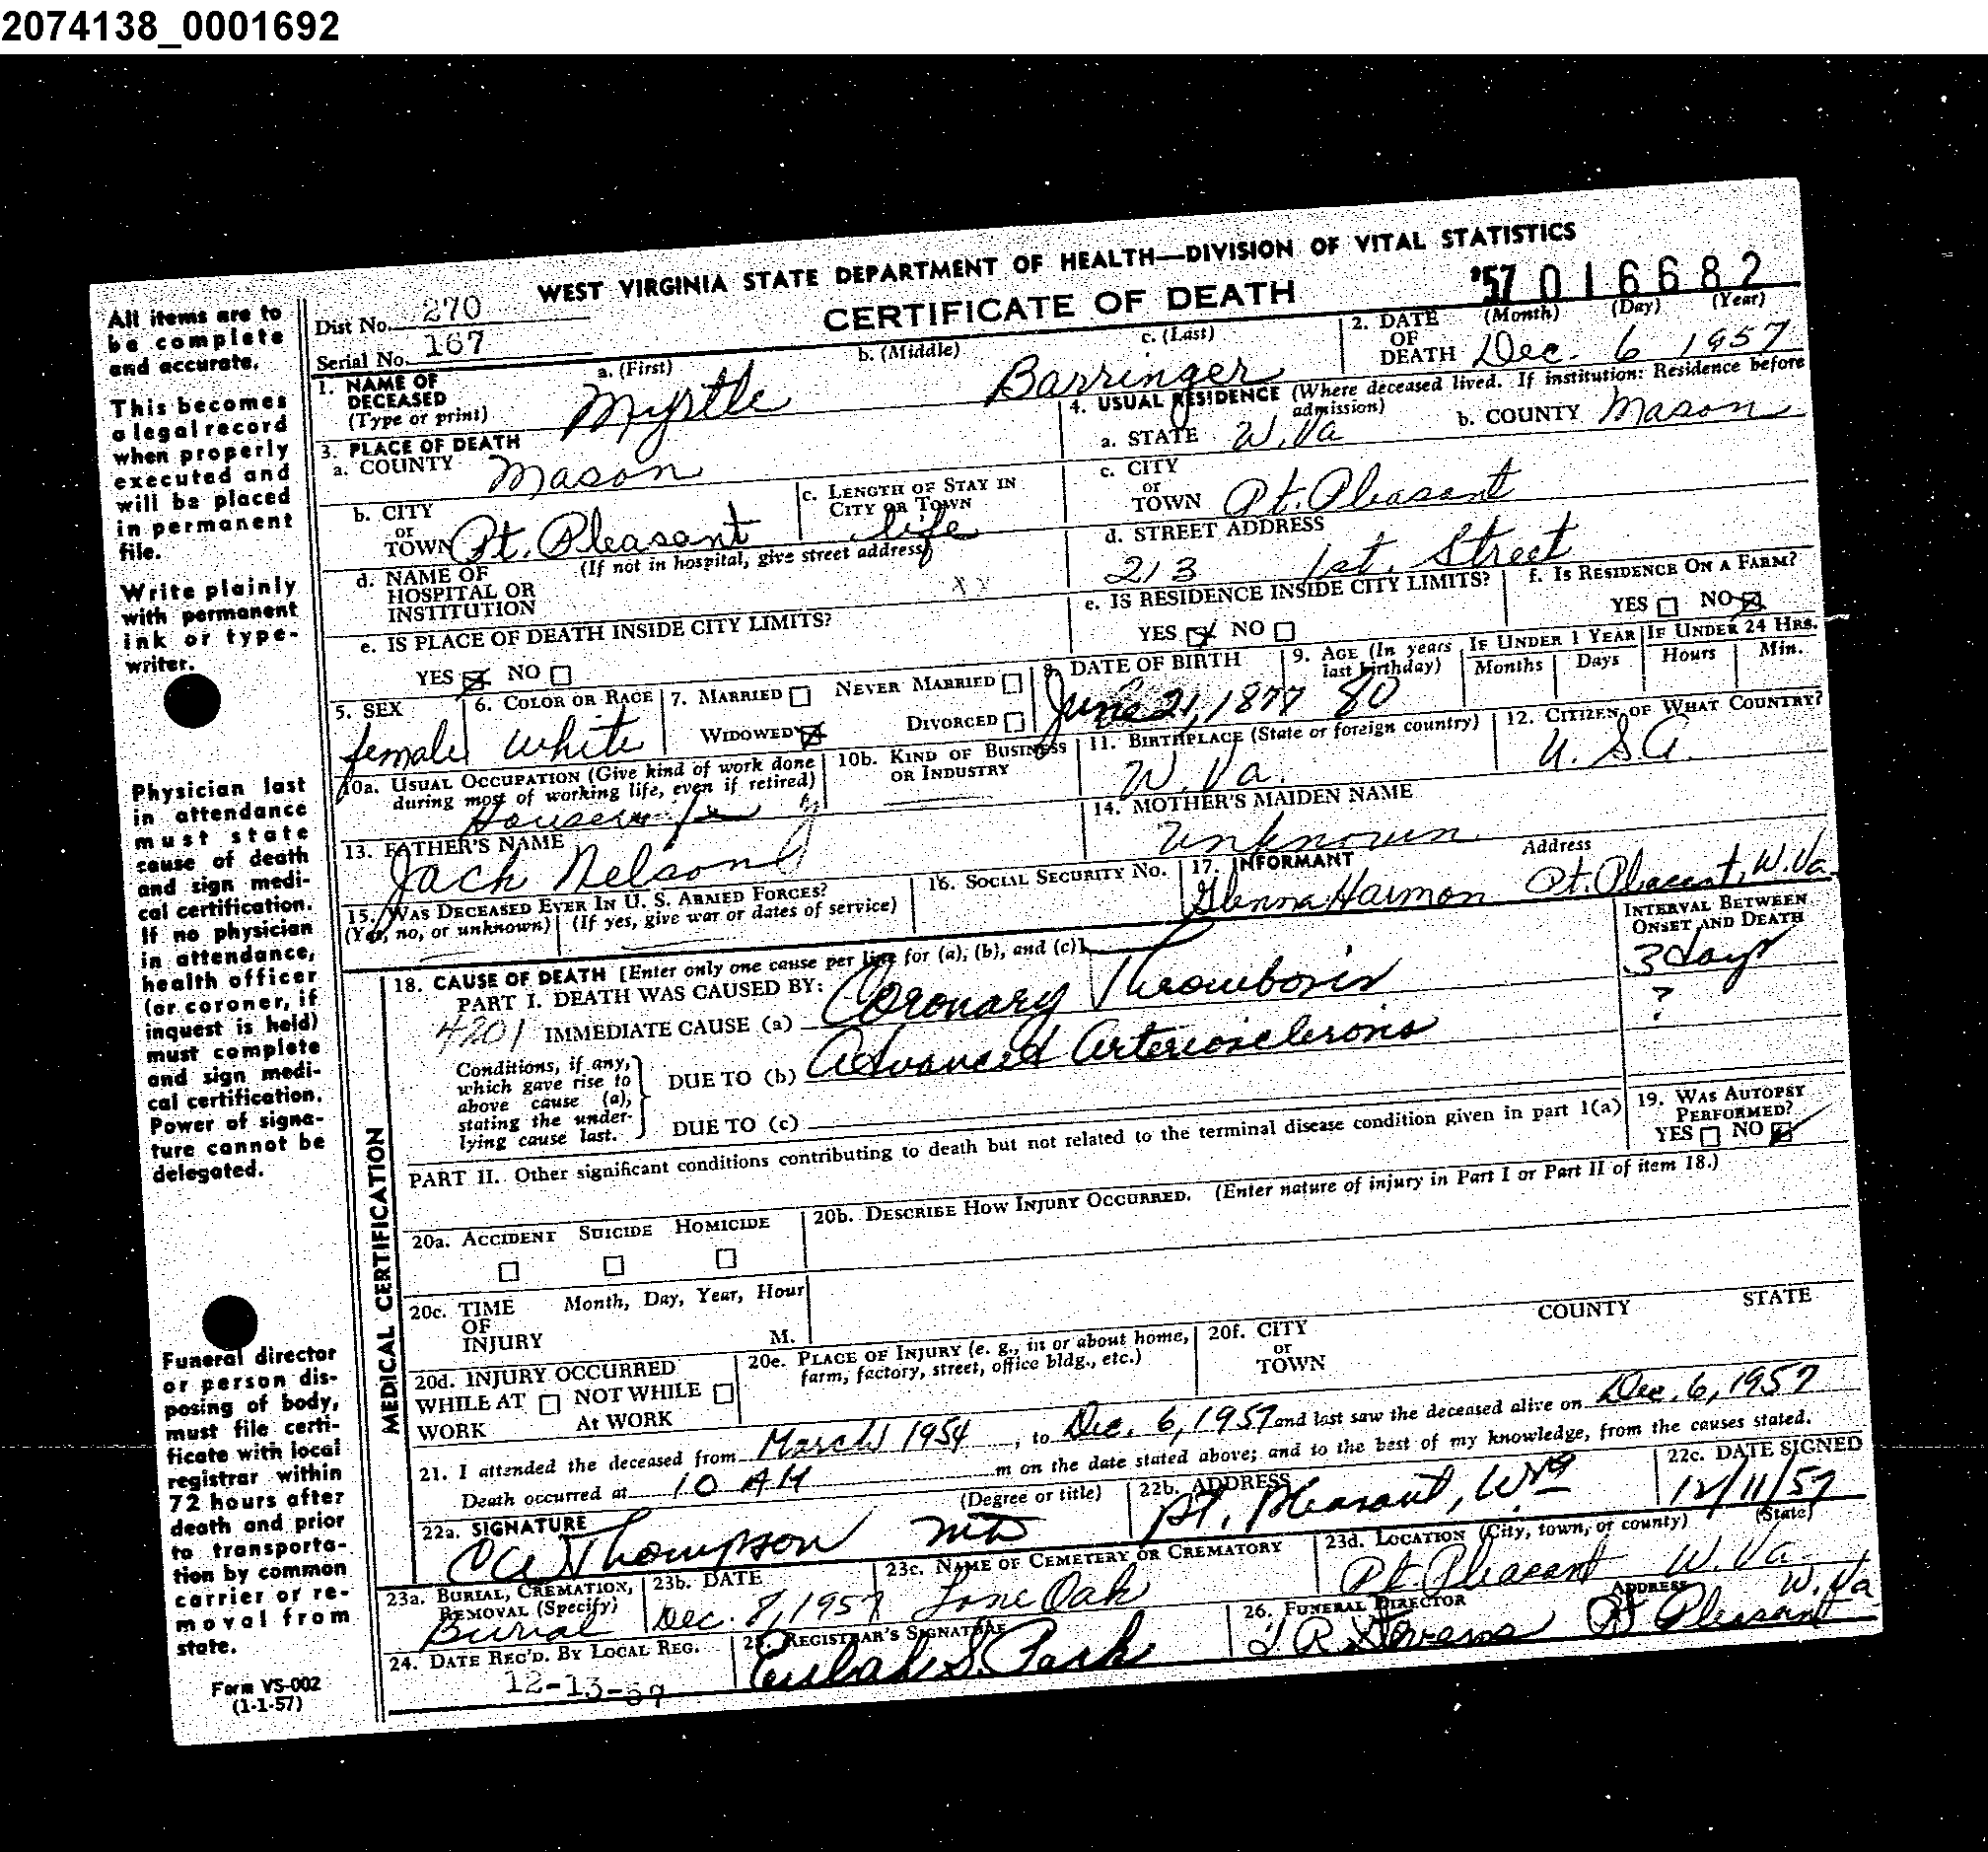 2074138_0001692
WEST VIRGINIA STATE DEPARTMENT OF HEALTH—DIVISION OF VITAL STATISTICS
CERTIFICATE OF DEATH
'57 016682
Dist No. 270
Serial No. 167
All items are to
be complete
and accurate.
This becomes
a legal record
when properly
executed and
will be placed
in permanent
file.
Write plainly
with permanent
ink or type-
writer.
Physician last
in attendance
must state
cause of death
and sign medi-
cal certification.
If no physician
in attendance,
health officer
(or coroner, if
inquest is held)
must complete
and sign medi-
cal certification.
Power of signa-
ture cannot be
delegated.
Funeral director
or person dis-
posing of body,
must file certi-
ficate with local
registrar within
72 hours after
death and prior
to transporta-
tion by common
carrier or re-
moval from
state.
Form VS-002
(1-1-57)
1. NAME OF DECEASED (Type or print)
a. (First) b. (Middle) c. (Last)
Myrtle Barringer
2. DATE OF DEATH (Month) (Day) (Year)
Dec. 6 1957
3. PLACE OF DEATH
a. COUNTY Mason
b. CITY or TOWN Pt. Pleasant
c. LENGTH OF STAY IN CITY OR TOWN life
d. NAME OF HOSPITAL OR INSTITUTION (If not in hospital, give street address)
xx
e. IS PLACE OF DEATH INSIDE CITY LIMITS?
YES NO
4. USUAL RESIDENCE (Where deceased lived. If institution: Residence before admission)
a. STATE W. Va b. COUNTY Mason
c. CITY or TOWN Pt. Pleasant
d. STREET ADDRESS
213 1st. Street
e. IS RESIDENCE INSIDE CITY LIMITS?
YES NO
f. IS RESIDENCE ON A FARM?
YES NO
5. SEX
female
6. COLOR OR RACE
white
7. MARRIED NEVER MARRIED
WIDOWED DIVORCED
8. DATE OF BIRTH
June 21, 1877
9. AGE (In years last birthday)
80
IF UNDER 1 YEAR
Months Days
IF UNDER 24 HRS.
Hours Min.
10a. USUAL OCCUPATION (Give kind of work done during most of working life, even if retired)
Housewife
10b. KIND OF BUSINESS OR INDUSTRY
11. BIRTHPLACE (State or foreign country)
W. Va.
12. CITIZEN OF WHAT COUNTRY?
U. S. A.
13. FATHER'S NAME
Jack Nelson
14. MOTHER'S MAIDEN NAME
Unknown
15. WAS DECEASED EVER IN U. S. ARMED FORCES?
(Yes, no, or unknown) (If yes, give war or dates of service)
16. SOCIAL SECURITY NO.
17. INFORMANT Address
Glenna Harmon Pt. Pleasant, W. Va.
MEDICAL CERTIFICATION
18. CAUSE OF DEATH [Enter only one cause per line for (a), (b), and (c)]
INTERVAL BETWEEN ONSET AND DEATH
PART I. DEATH WAS CAUSED BY:
4201 IMMEDIATE CAUSE (a) Coronary Thrombosis 3 days
Conditions, if any, which gave rise to above cause (a), stating the underlying cause last.
DUE TO (b) Advanced Arteriosclerosis ?
DUE TO (c)
PART II. Other significant conditions contributing to death but not related to the terminal disease condition given in part 1(a)
19. WAS AUTOPSY PERFORMED?
YES NO
20a. ACCIDENT SUICIDE HOMICIDE
20b. DESCRIBE HOW INJURY OCCURRED. (Enter nature of injury in Part I or Part II of item 18.)
20c. TIME OF INJURY Month, Day, Year, Hour
M.
20d. INJURY OCCURRED
WHILE AT WORK NOT WHILE At WORK
20e. PLACE OF INJURY (e. g., in or about home, farm, factory, street, office bldg., etc.)
20f. CITY or TOWN COUNTY STATE
21. I attended the deceased from March 1954, to Dec. 6, 1957 and last saw the deceased alive on Dec. 6, 1957
Death occurred at 10 AM m on the date stated above; and to the best of my knowledge, from the causes stated.
22a. SIGNATURE (Degree or title)
CA Thompson MD
22b. ADDRESS
Pt. Pleasant, WVa
22c. DATE SIGNED
12/11/57
23a. BURIAL, CREMATION, REMOVAL (Specify)
Burial
23b. DATE
Dec. 8, 1957
23c. NAME OF CEMETERY OR CREMATORY
Lone Oak
23d. LOCATION (City, town, or county) (State)
Pt Pleasant W. Va
24. DATE REC'D. BY LOCAL REG.
12-13-57
25. REGISTRAR'S SIGNATURE
Eulah S. Park
26. FUNERAL DIRECTOR ADDRESS
J R Stevens Pt Pleasant W. Va